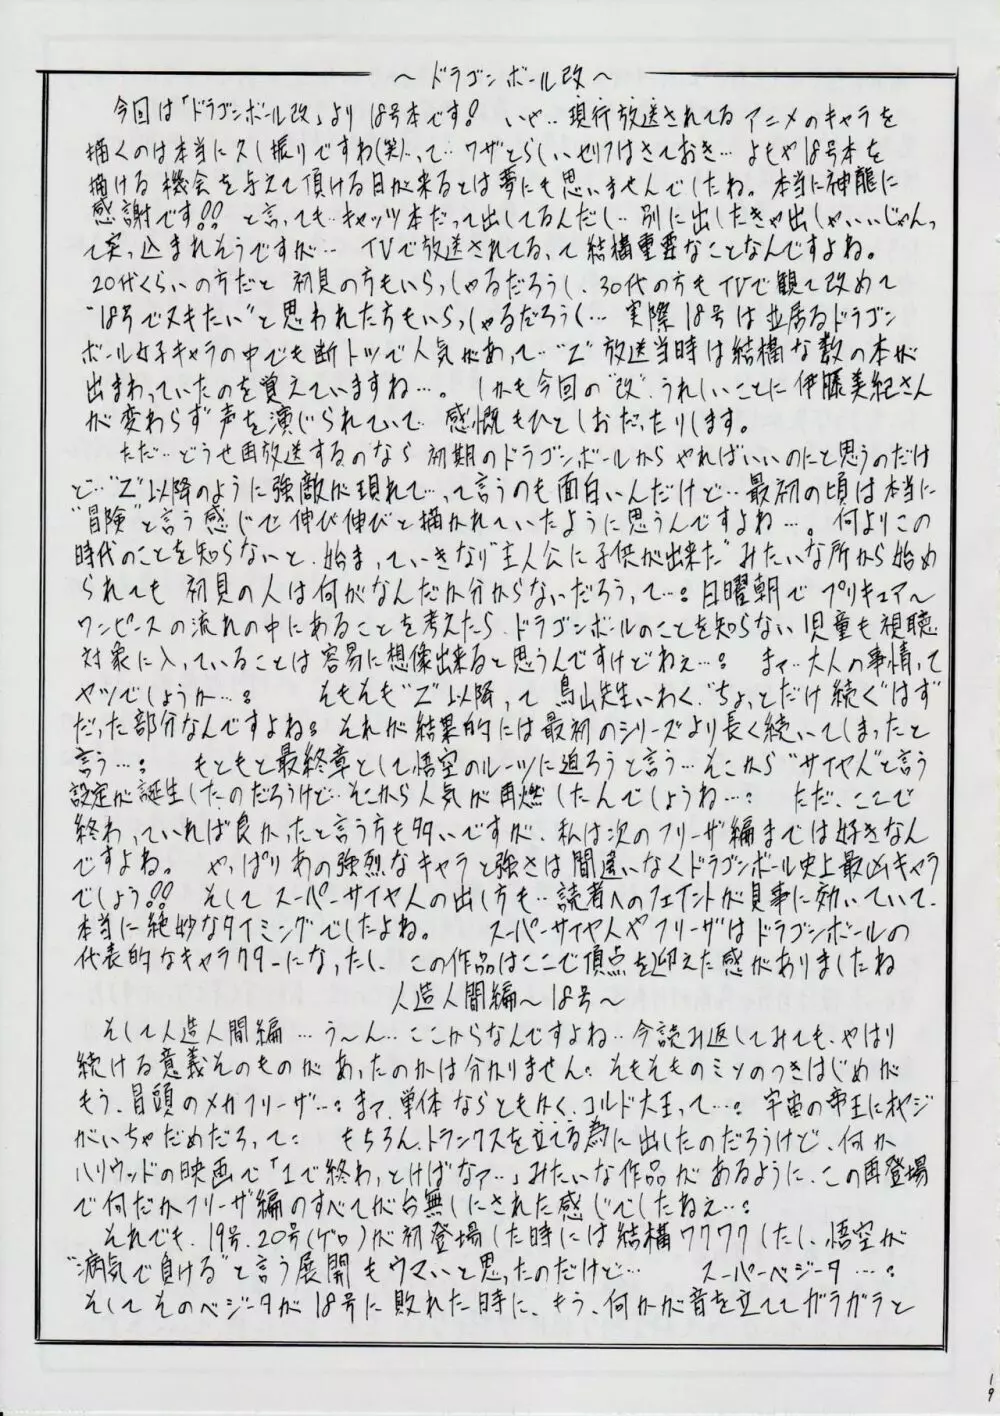 ～ドラゴンボール改～
今回は「ドラゴンボール改」より18号本です! いや‥現行放送されてるアニメのキャラを
描くのは本当に久し振りですね(笑)、って‥ワザとらしいセリフはさておき… よもや18号本を
描ける機会を与えて頂ける日が来るとは夢にも思いませんでしたね。本当に神龍に
感謝です!! と言っても‥キャッツ本だって出してるんだし‥別に出したきゃ出しゃいいじゃんっ
て突っ込まれそうですが… TVで放送されてる、って結構重要なことなんですよね。
20代くらいの方だと 初見の方もいらっしゃるだろうし、30代の方もTVで観て改めて
"18号でヌキたい"と思われた方もいらっしゃるだろうし… 実際18号は並居るドラゴン
ボール女子キャラの中でも断トツで人気があって‥"Z"放送当時は結構な数の本が
出まわっていたのを覚えていますね…。しかも今回の"改"、うれしいことに伊藤美紀さん
が変わらず声を演じられていて、感慨もひとしおだったりします。
ただ‥どうせ再放送するのなら 初期のドラゴンボールからやればいいのにと思うのだけ
ど‥"Z"以降のように強敵が現れて…って言うのも面白いんだけど‥最初の頃は本当に
"冒険"と言う感じで伸び伸びと描かれていたように思うんですよね…。何よりこの
時代のことを知らないと、始まっていきなり"主人公に子供が出来た"みたいな所から始め
られても 初見の人は何がなんだか分からないだろうって…。日曜朝で プリキュア～
ワンピースの流れの中にあることを考えたら、ドラゴンボールのことを知らない児童も視聴
対象に入っていることは容易に想像出来ると思うんですけどねぇ…。 まァ‥大人の事情って
ヤツでしょうか…。 そもそも"Z"以降って 鳥山先生いわく、"ちょっとだけ続く"はず
だった部分なんですよね。それが結果的には最初のシリーズより長く続いてしまったと
言う…。 もともと最終章として悟空のルーツに迫ろうと言う…そこから"サイヤ人"と言う
設定が誕生したのだろうけど‥そこから人気が再燃したんでしょうね…。 ただ、ここで
終わっていれば良かったと言う方も多いですが、私は次のフリーザ編までは好きなん
ですよね。 やっぱりあの強烈なキャラと強さは間違いなくドラゴンボール史上最凶キャラ
でしょう!! そしてスーパーサイヤ人の出し方も‥読者へのフェイントが見事に効いていて、
本当に絶妙なタイミングでしたよね。 スーパーサイヤ人やフリーザはドラゴンボールの
代表的なキャラクターになったし、この作品はここで頂点を迎えた感がありましたね
人造人間編～18号～
そして人造人間編…う～ん‥ここからなんですよね‥今読み返してみても、やはり
続ける意義そのものがあったのかは分かりません。そもそものミソのつきはじめが
もう、冒頭のメカフリーザ…。まァ、単体ならともかく、コルド大王って…。宇宙の帝王にオヤジ
がいちゃだめだろって。 もちろん、トランクスを立てる為に出したのだろうけど、何か
ハリウッドの映画で「1で終わっとけばなァ…」みたいな作品があるように、この再登場
で何だかフリーザ編のすべてが台無しにされた感じでしたねぇ…。
それでも、19号、20号(ゲロ)が初登場した時には結構ワクワクしたし、悟空が
"病気で負ける"と言う展開もウマいと思ったのだけど… スーパーベジータ…。
そしてそのベジータが18号に敗れた時に、もう、何かが音を立ててガラガラと
19